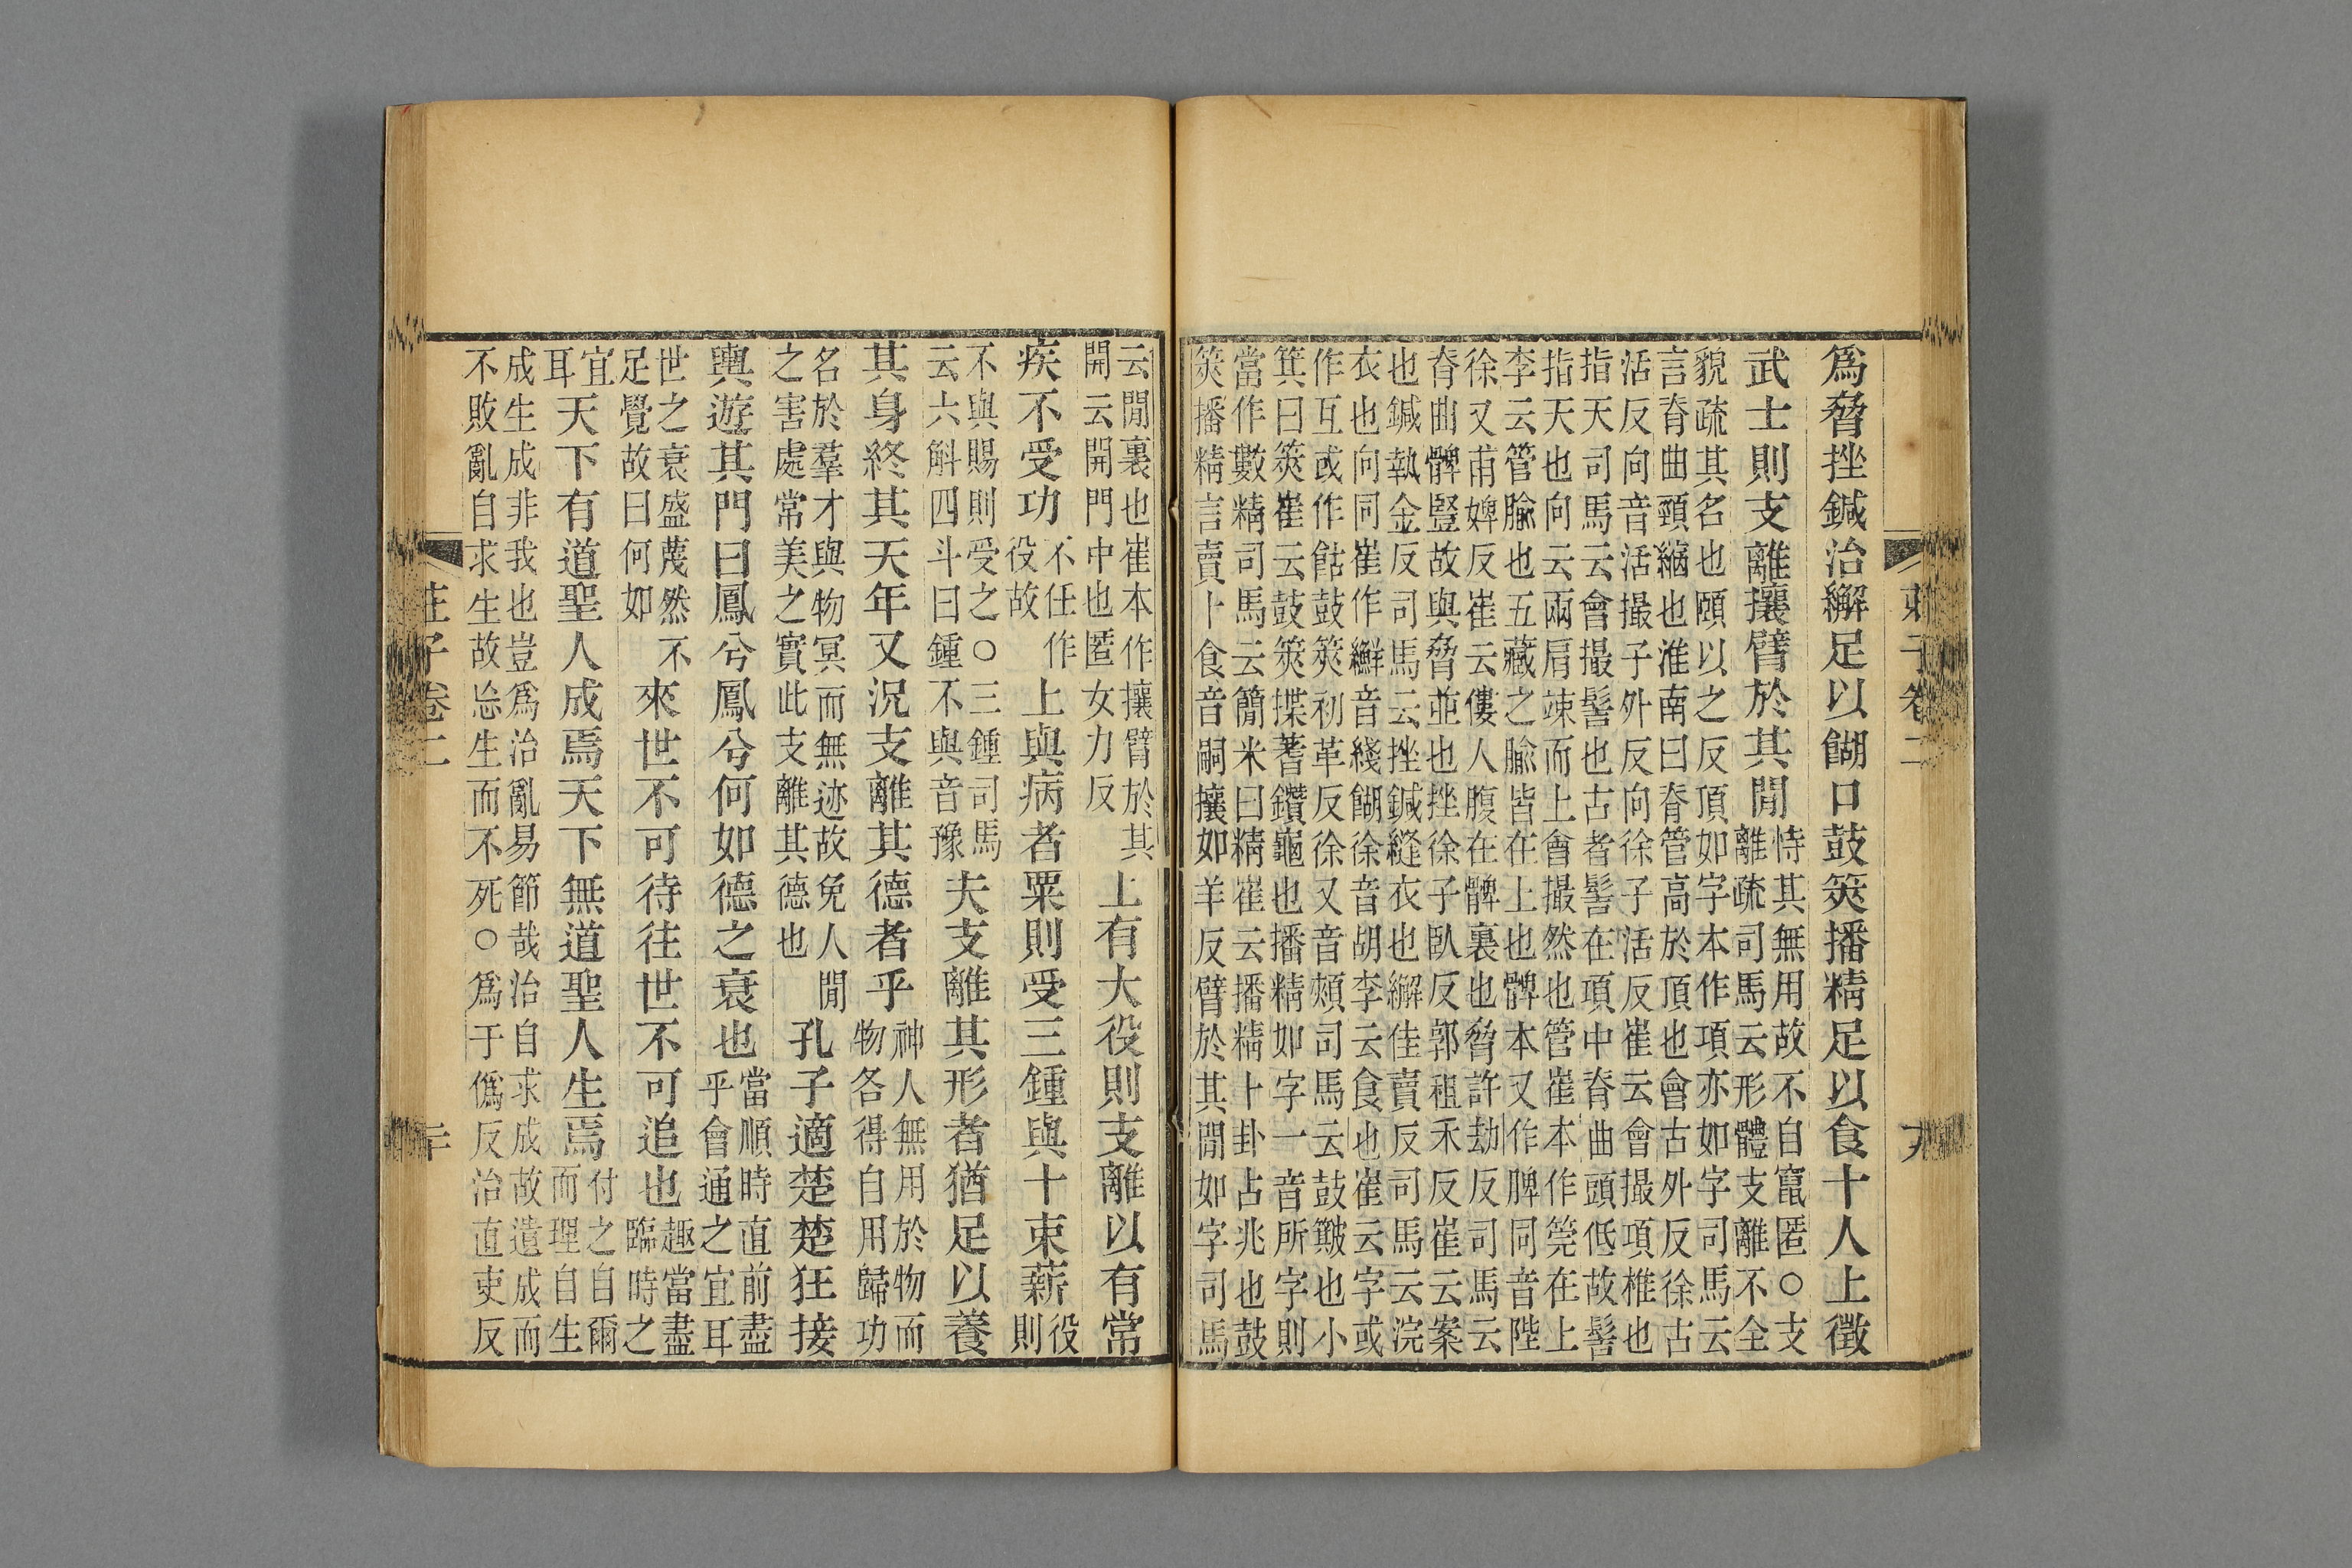 莊子卷二
爲脅挫鍼治繲足以餬口鼓筴播精足以食十人上徵
武士則支離攘臂於其閒
恃其無用故不自竄匿○支
離疏司馬云形體支離不全
貌疏其名也頤以之反頂如字本作項亦如字司馬云
言脊曲頸縮也淮南曰脊管高於頂也會古外反徐古
活反向音活撮子外反向徐子活反崔云會撮項椎也
指天司馬云會撮髻也古者髻在項中脊曲頭低故髻
指天也向云兩肩竦而上會撮然也管崔本作筦在上
李云管腧也五藏之腧皆在上也髀本又作脾同音陛
徐又甫婢反崔云僂人腹在髀裏也脅許劫反司馬云
脊曲髀豎故與脅並也挫徐子臥反郭租禾反崔云案
也鍼執金反司馬云挫鍼縫衣也繲佳賣反司馬云浣
衣也向同崔作音綫餬徐音胡李云食也崔云字或
作互或作䬣鼓筴初革反徐又音頰司馬云鼓簸也小
箕曰筴崔云鼓筴揲蓍鑽龜也播精如字一音所字則
當作數精司馬云簡米曰精崔云播精卜卦占兆也鼓
筴播精言賣卜食音嗣攘如羊反臂於其閒如字司馬
云閒裏也崔本作攘臂於其
開云開門中也匿女力反
上有大役則支離以有常
疾不受功
不任作
役故
上與病者粟則受三鍾與十束薪
役
則
不與賜則受之○三鍾司馬
云六斛四斗曰鍾不與音豫
夫支離其形者猶足以養
其身終其天年又況支離其德者乎
神人無用於物而
物各得自用歸功
名於羣才與物冥而無迹故免人閒
之害處常美之實此支離其德也
孔子適楚楚狂接
輿遊其門曰鳳兮鳳兮何如德之衰也
當順時直前盡
乎會通之宜耳
世之衰盛蔑然不
足覺故曰何如
來世不可待往世不可追也
趣當盡
臨時之
宜
耳
天下有道聖人成焉天下無道聖人生焉
付之自爾
而理自生
成生成非我也豈爲治亂易節哉治自求成故遺成而
不敗亂自求生故忘生而不死○爲于僞反治直吏反
莊子卷二
二十